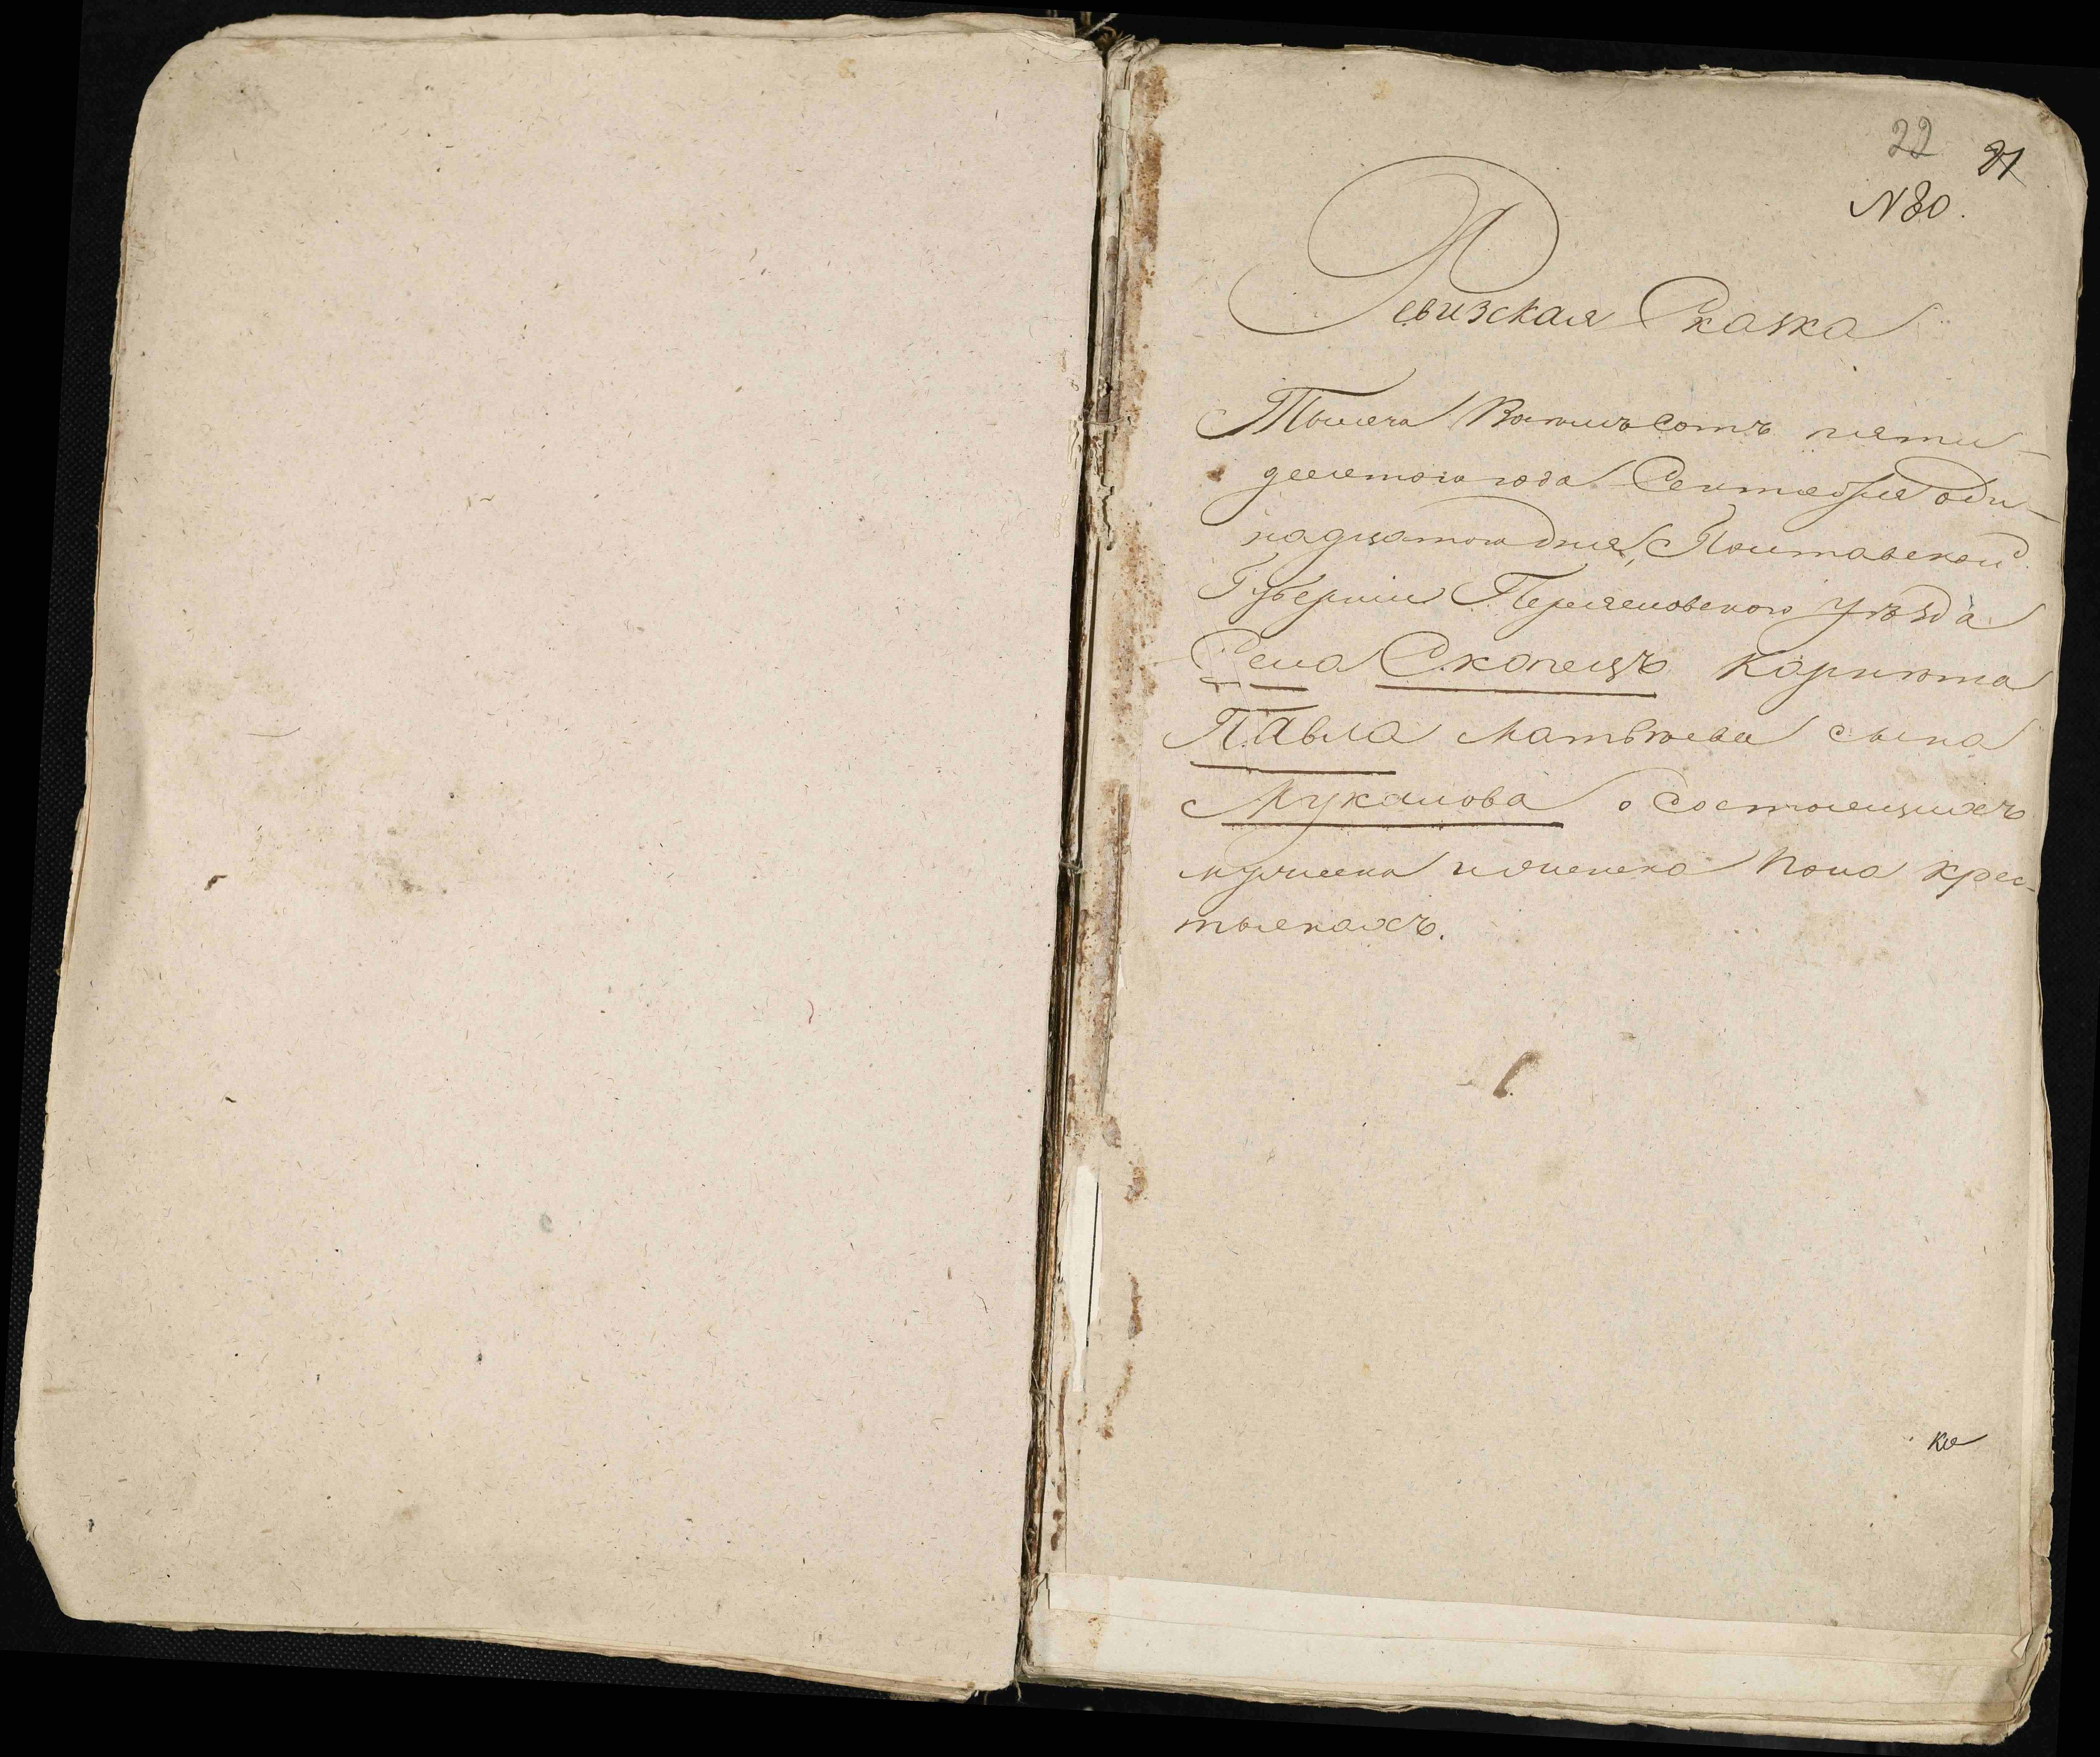 22 21
N 80.
Ревизская Сказка
Тысяча Восимъ Сотъ пяти-
десятого года Сентября оди-
надцатого дня, Полтавской
Губернии Переясловского уѣзда
Села Скопецъ Карнѣта
Павла Матвѣева сына
Лукашова о Состоящихъ
мужеска и женска пола крес-
тьянахъ.